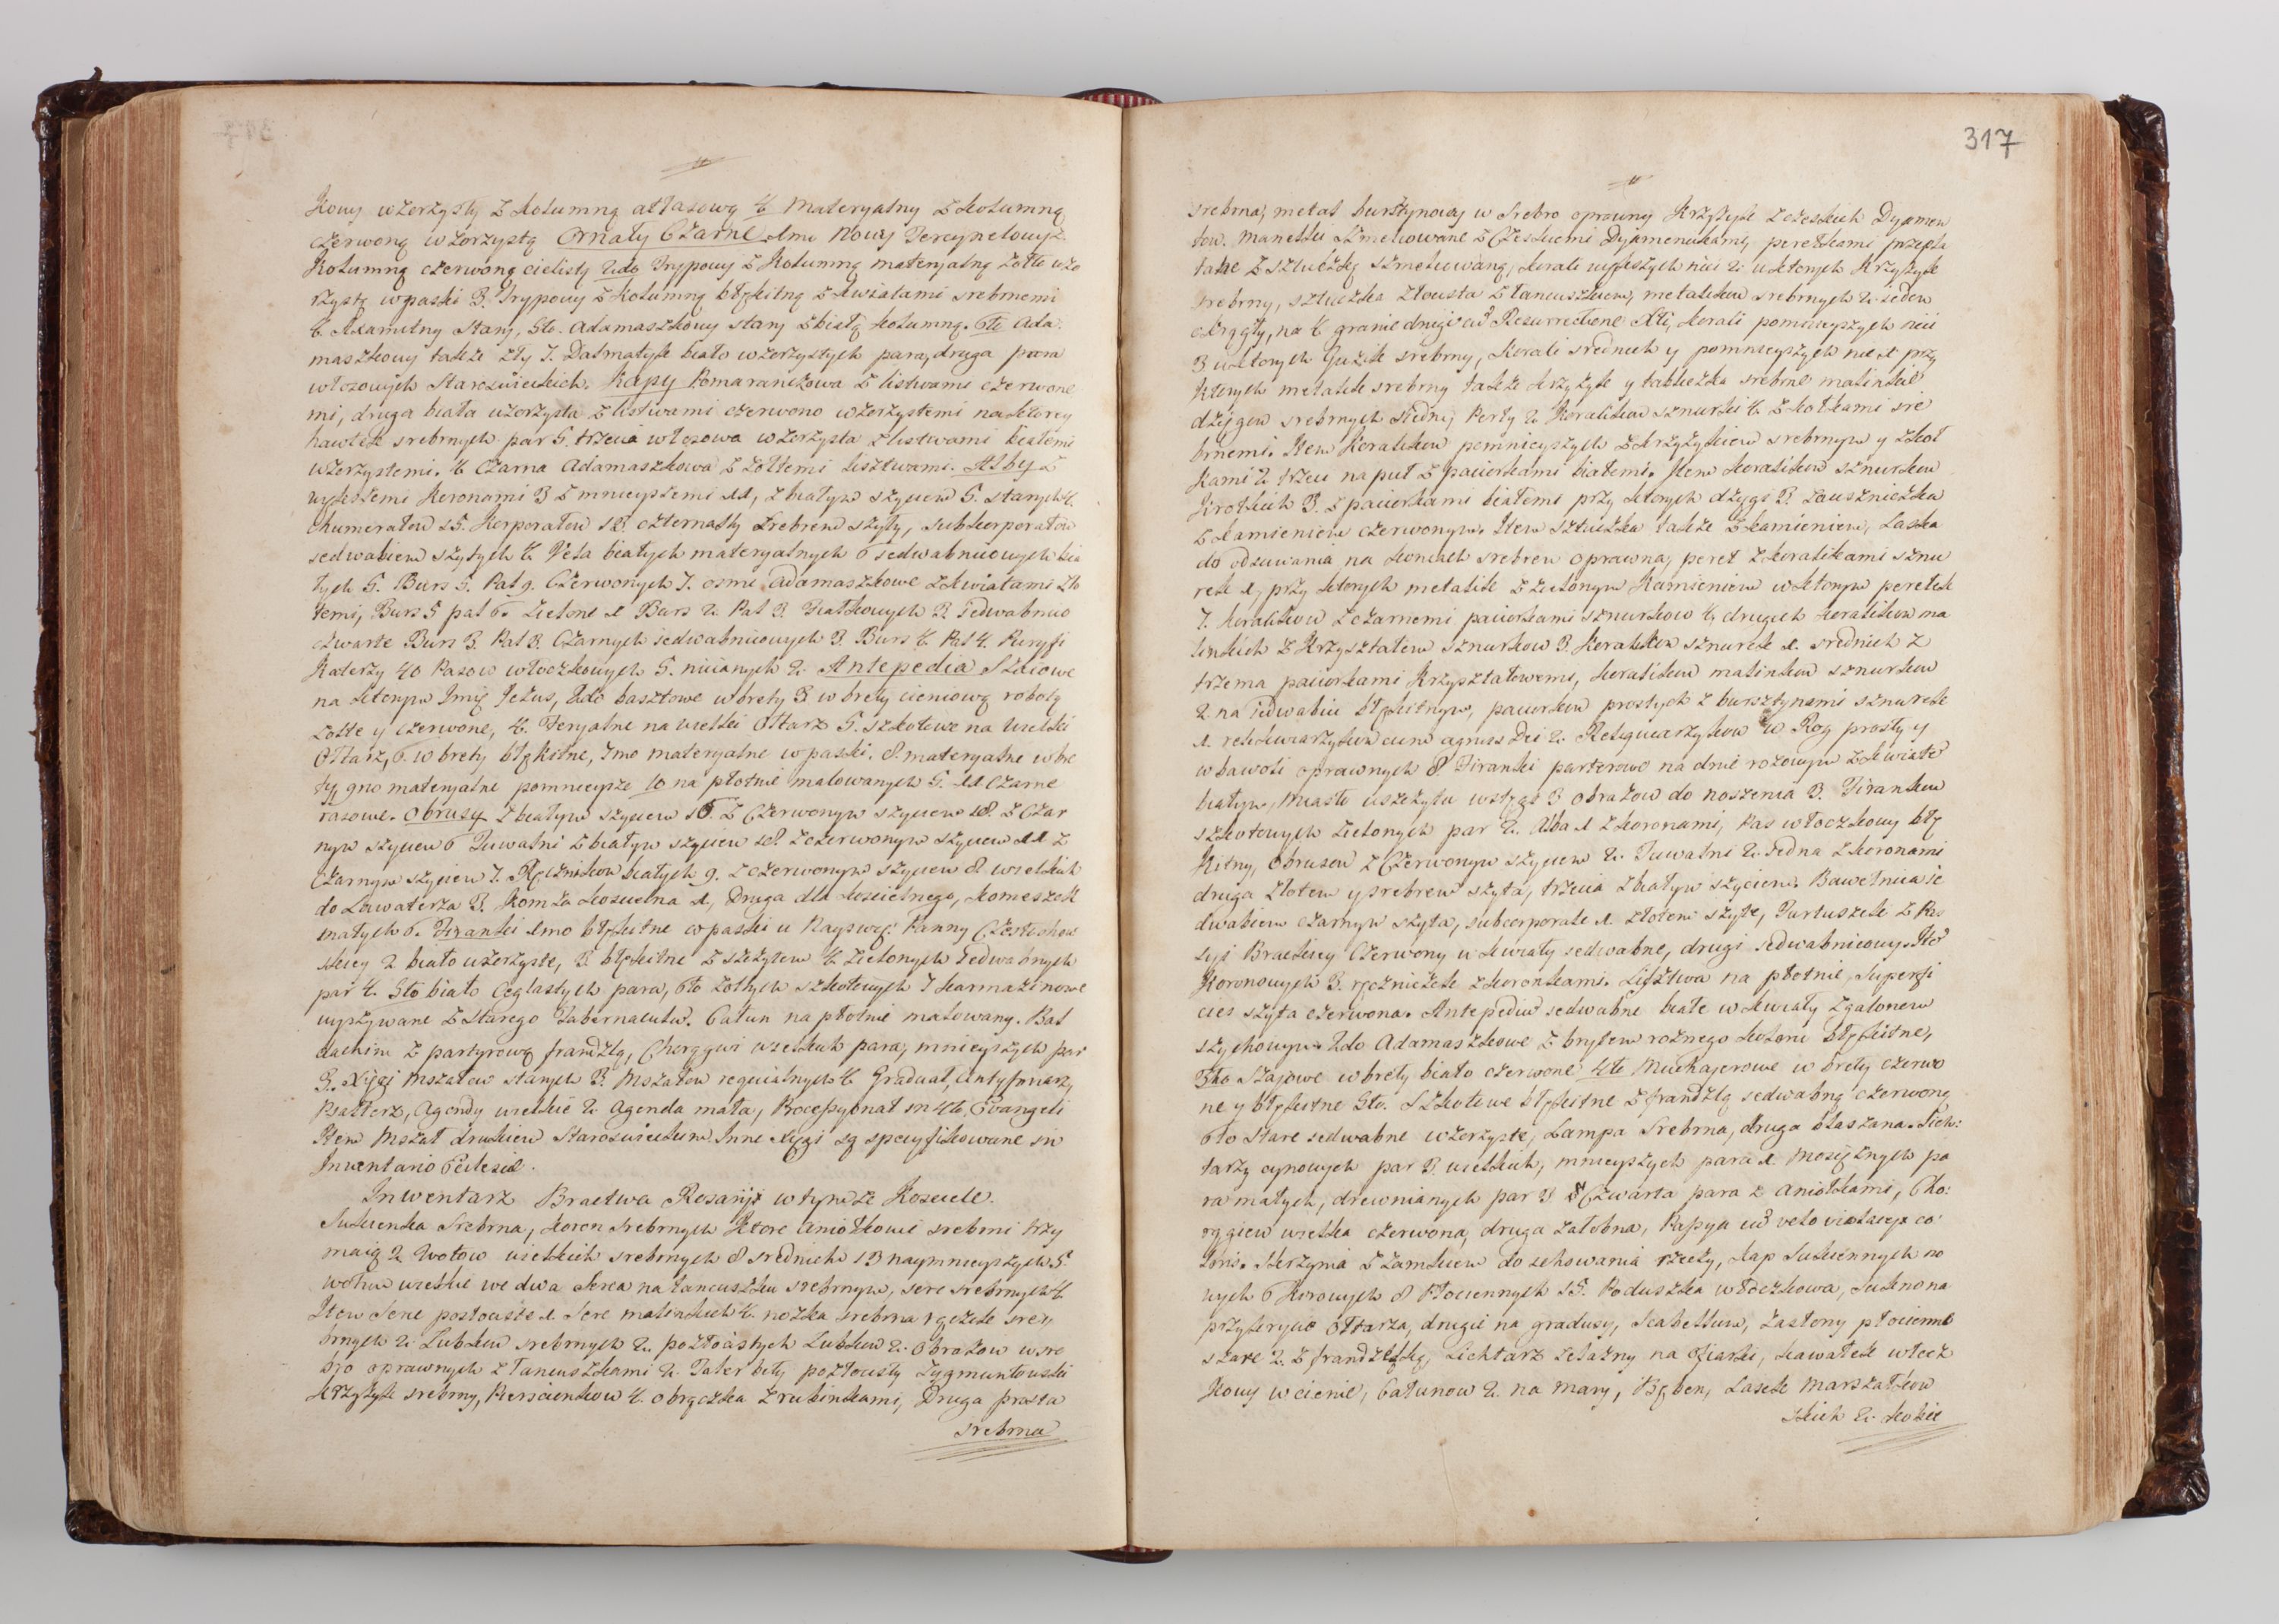 kowy wzorzysty z kolumną atłasową 4 Materyalny z kolumną
czerwoną wzorzystą Ornaty Czarne 1mu Nowy Tercynelowy z
Kolumną czerwoną cielisty 2do Trypowy z Kolumną materyalną żołto wzo
rzystą w paski 3. Trypowy z kolumną błękitną z kwiatami srebrnemi
4 Axamitny stary, 5to. Adamaszkowy stary z białą kolumną. 6to Ada
maszkowy także zły 7. Dalmatyk biało wzorzystych para, druga para
włosowych Staroświeckich. Kapy Pomaranczowa z listwami czerwone
mi, druga biała wzorzysta z listwami czerwono wzorzystemi na ktorey
hawtek srebrnych par 5. trzecia włosowa wzorzysta z listwami białemi
wzorzystemi. 4 Czarna Adamaszkowa z żołtemi lisztwami. Alby z
większemi Koronami 3 z mnieyszemi 11, z białym szyciem 5. starych 4.
Humerałow 15. Korporałow 18. czternasty srebrem szyty, subkorporałow
jedwabiem szytych 4 Vela białych materyalnych 6 jedwabnicowych bia
łych 5. Burs 5. Pal 9. Czerwonych 7. osme adamaszkowe z kwiatami żoł
temi, Burs 5 pal 6. Zielone 1 Burs 2. Pal 3. Fiałkowych 3. Jedwabnico
czwarte Burs 3. Pal 3. Czarnych jedwabnicowych 3 Burs 4 Pal 4. Puryfi
Katerzy 40 Pasow włoczkowych 5. nicianych 2. Antepedia Szkicowe
na ktorym Imię Jezus, 2do basztowe w brety 3 w brety cieniową robotą
żołte y czerwone, 4. Feryalne na wielki Ołtarz 5. szkotowe na wielki
Ołtarz, 6. w brety błękitne, 7mo materyalne w paski. 8. materyalne w bre
ty, 9no materyalne pomnieysze 10 na płotnie malowanych 5. 11 Czarne
rasowe. Obrusy z białym szyciem 16. z Czerwonym szyciem 18. z Czar
nym szyciem 6 Tuwalni z białym szyciem 18. z czerwonym szyciem 11 z
Czarnym szyciem 7. Ręcznikow białych 9. z czerwonym szyciem 8 wielkich
do Lawaterza 3. Komża koscielna 1, Druga dla koscielnego, komeszek
małych 6. Firanki 1mo błękitne w paski u Nayswęt: Panny Częstochow
skiey 2 biało wzorzyste, 3. błękitne z szczytem 4 zielonych Jedwabnych
par 4. 5to biało Ceglastych para, 6to żołtych szkotowych 7 karmazinowe
wyszywane z starego Tabernaculum. Całun na płotnie malowany. Bal
dachim z partyrową frandzlą, Chorągwi wielkich para, mnieyszych par
5. Xięgi Mszałow starych 3. Mszałow requialnych 4 Graduał, Antyfonarz,
Psałterz, Agendy wielkie 2. Agenda mała, Processyonał in 4to, Evangeli
Item Mszał drukiem Staroswieckim. Inne Xięgi są specyfikowane in
Inventario Ecclesiæ.
Inwentarz Bractwa Rosaryi w tymże Kosciele.
Sukienka Srebrna, koron srebrnych Ktore Aniołkowie srebrni trzy
maią 2. Wotow wielkich srebrnych 8 srednich 13 naymnieyszych 5.
wotum wielkie we dwa Serca na łancuszku srebrnym, serc srebrnych 4
Item Serce pozłociste 1. Serc malenkich 4. nozka srebrna rączek sre
brnych 2. Lubkow srebrnych 2. pozłocistych Lubkow 2. Obrazow w sre
bro oprawnych z łancuszkami 2. Taler bity pozłocisty Zygmuntowski
Krzyżyk srebrny, Pierscionkow 4. obrączka z rubinkami, Druga prosta
srebrna
317
srebrna, metal bursztynowy w srebro oprawny Krzyżyk z czeskich Dyamen
tow. Manelki szmelcowane z Czeskiemi Dyamencikami, perełkami przepla
tane z sztuczką szmelcowaną, korali większych nici 2. u ktorych Krzyżyk
srebrny, sztuczka złocista z łancuszkiem, metalikow srebrnych 2. jeden
okrągły, na 4 granie drugi cu Resurrectione Xti, korali pomnieyszych nici
3 u ktorych Guzik srebrny, Korali srednich y pomnieyszych nic 1 przy
ktorych metalik srebrny także krzyżyk y tabliczka srebrne malinkie
dżygow srebrnych siedm, Perły 2. Koralikow sznurki 4. z kotkami sre
brnemi. Item Koralikow pomnieyszych z krzyżykiem srebrnym y z kot
kami 2. trzeci na puł z paciorkami białemi. Item koralikow sznurkow
krotkich 3. z paciorkami białemi przy ktorych dzyga 3. zauszniczka
z kamieniem czerwonym. Item sztuczka także z kamieniem, Laska
do odsuwania na koncach srebrem oprawna, pereł z koralikami sznu
rek 1, przy ktorych metalik z zielonym Kamieniem w ktorym perełek
7. koralikow z czarnemi paciorkami sznurkow 4, drugich koralikow ma
linkich z Krzyształem sznurkow 3. Koralikow sznurek 1. srednich z
trzema paciorkami Krzyształowemi, koralikow malinkow sznurkow
2. na Jedwabiu błękitnym, paciorkow prostych z bursztynami sznurek
1. relikwiarzykow cum agnus Dei 2. Reliquiarzykow w Rog prosty y
w bawoli oprawnych 8 Firanki parterowe na dnie rozowym z kwiate
białym, Miasto uszczytu wstęga 3 obrazow do noszenia 3. Firankow
szkotowych zielonych par 2. Alba 1 z koronami, Pas włoczkowy błę
kitny, Obrusow z Czerwonym szyciem 2. Tuwalni 2. Jedna z koronami
druga złotem y srebrem szyta, trzecia z białym szyciem. Bawełnica je
dwabiem czarnym szyta, subcorporale 1. złotem szyte, Fartuszek z Pas
syi Brackiey Czerwony w kwiaty jedwabne, drugi jedwabnicowy. Ite
Koronowych 3. ręczniczek z koronkami. Lisztwa na płotnie, superfi
cies szyta czerwona. Antepediu jedwabne białe w kwiaty z galonem
szychowym 2do Adamaszkowe z brytem roznego koloru błękitne,
3tio Szajowe w brety biało czerwone 4te Muchajerowe w brety czerwo
ne y błękitne 5to. Szkotowe błękitne z frandzlą jedwabną czerwoną
6to stare jedwabne wzorzyste, Lampa Srebrna, druga blaszana. Lich:
tarzy cynowych par 3. wielkich, mnieyszych para 1. mosiężnych pa
ra małych, drewnianych par 3 Czwarta para z Aniołkami, Cho:
rągiew wielka czerwona, druga żałobna, Passya cu velo violacei co:
loris. Skrzynia z zamkiem do schowania rzeczy, kap sukiennych no
wych 6 Korowych 8 Płociennych 15. Poduszka włoczkowa, sukno na
przykrycie Ołtarza, drugie na gradusy, Scabellum, zasłony płocienne
stare 2. z frandzelką, Lichtarz żelazny na ofiarki, kawałek włocz
kowy w cienie, Całunow 2. na mary, Bęben, Lasek Marszałkow
skich 2. kobie